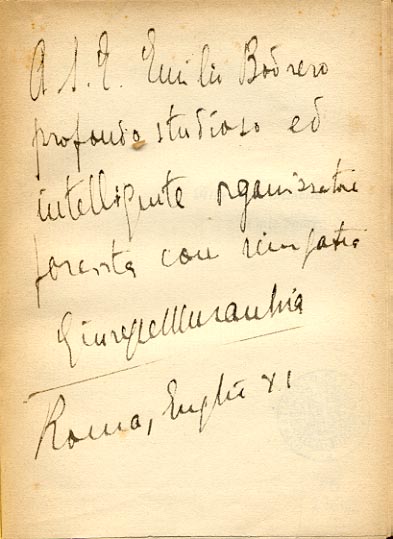 A S. E. Emilio Bodrero
profondo studioso ed
intelligente organizzatore
fascista con simpatia
Giuseppe
Roma, Luglio XI